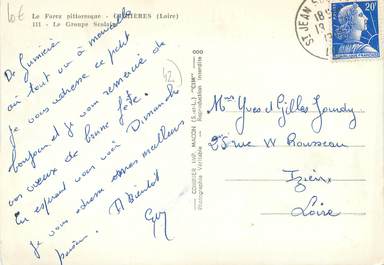 10€
Le Forez pittoresque - (Loire)
III - Le Groupe Scolaire
42
De
où tout va à merveille
je vous adresse ce petit
bonjour et je vous remercie de
vos voeux de bonne fête.
En espérant vous voir Dimanche
je vous adresse mes meilleurs
A Bientôt
Guy
000
COMBIER IMP. MACON (S.-et-L.) "CIM"
Photographie Véritable - Reproduction Interdite
ST JEAN
18
19
20F
Mrs Yves et Gilles
25 rue W Rousseau
Izieux
Loire